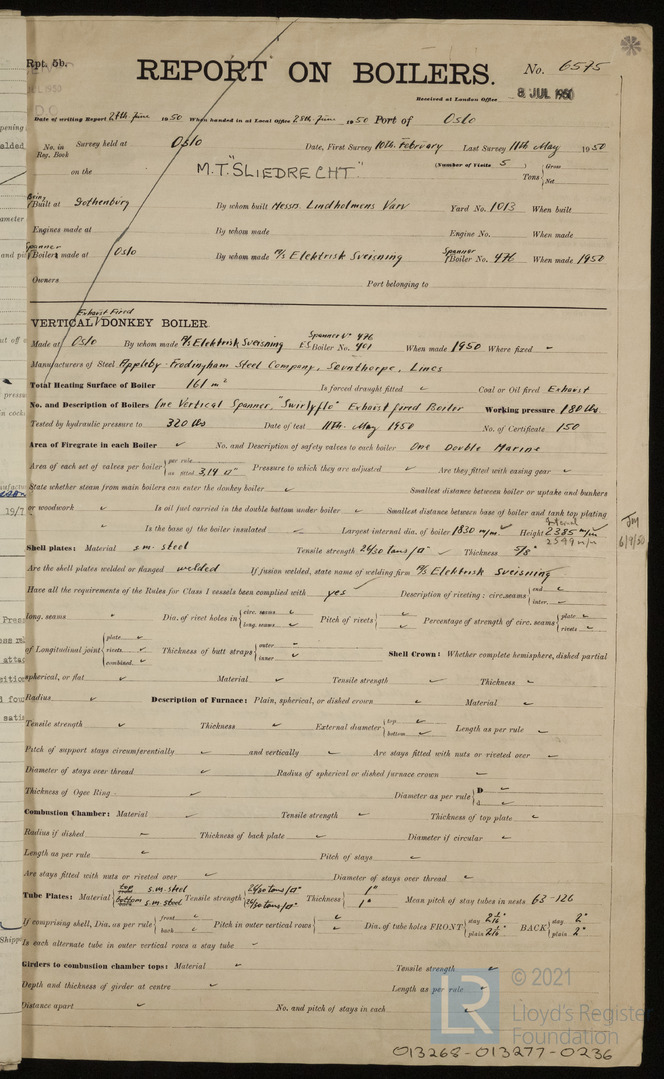 Rpt. 5b.
REPORT ON BOILERS.
No. 6575
Received at London Office 8 JUL 1950
Date of writing Report 27th June 1950 When handed in at Local Office 28th June 1950 Port of Oslo
No. in Reg. Book Survey held at Oslo Date, First Survey 10th February Last Survey 11th May 1950
on the M.T. "SLIEDRECHT" (Number of Visits 5 ) Tons { Gross Net
Being Built at Gothenburg By whom built Messrs Lindholmens Varv Yard No. 1013 When built
Engines made at By whom made Engine No. When made
Spanner Boilers made at Oslo By whom made A/S Elektrisk Sveisning Spanner Boiler No. 476 When made 1950
Owners Port belonging to
VERTICAL Exhaust Fired DONKEY BOILER
Made at Oslo By whom made A/S Elektrisk Sveisning Spanner No 476 E.S. Boiler No. 401 When made 1950 Where fixed
Manufacturers of Steel Appleby-Frodingham Steel Company, Scunthorpe, Lincs
Total Heating Surface of Boiler 161 m² Is forced draught fitted Coal or Oil fired Exhaust
No. and Description of Boilers One Vertical Spanner, "Swirlyflo" Exhaust fired Boiler Working pressure 180 lbs.
Tested by hydraulic pressure to 320 lbs Date of test 11th May 1950 No. of Certificate 150
Area of Firegrate in each Boiler No. and Description of safety valves to each boiler One Double Marine
Area of each set of valves per boiler { per rule as fitted 3,14 □" Pressure to which they are adjusted Are they fitted with easing gear
State whether steam from main boilers can enter the donkey boiler Smallest distance between boiler or uptake and bunkers
or woodwork Is oil fuel carried in the double bottom under boiler Smallest distance between base of boiler and tank top plating
Is the base of the boiler insulated Largest internal dia. of boiler 1830 m/m. Height Internal 2385 m/m 2549 m/m
JM 6/9/50
Shell plates: Material s.m. steel Tensile strength 24/30 tons/□" Thickness 5/8"
Are the shell plates welded or flanged welded If fusion welded, state name of welding firm A/S Elektrisk Sveisning
Have all the requirements of the Rules for Class I vessels been complied with yes Description of riveting: circ. seams { end inter.
long. seams Dia. of rivet holes in { circ. seams long. seams Pitch of rivets { Percentage of strength of circ. seams { plate rivets
of Longitudinal joint { plate rivets combined Thickness of butt straps { outer inner Shell Crown: Whether complete hemisphere, dished partial
spherical, or flat Material Tensile strength Thickness
Radius Description of Furnace: Plain, spherical, or dished crown Material
Tensile strength Thickness External diameter { top bottom Length as per rule
Pitch of support stays circumferentially and vertically Are stays fitted with nuts or riveted over
Diameter of stays over thread Radius of spherical or dished furnace crown
Thickness of Ogee Ring Diameter as per rule { D d
Combustion Chamber: Material Tensile strength Thickness of top plate
Radius if dished Thickness of back plate Diameter if circular
Length as per rule Pitch of stays
Are stays fitted with nuts or riveted over Diameter of stays over thread
Tube Plates: Material { top s.m. steel bottom s.m. steel Tensile strength { 24/30 tons/□" 24/30 tons/□" Thickness { 1" 1" Mean pitch of stay tubes in nests 63-126
If comprising shell, Dia. as per rule { front back Pitch in outer vertical rows { Dia. of tube holes FRONT { stay plain BACK { stay 2" plain 2"
Is each alternate tube in outer vertical rows a stay tube
Girders to combustion chamber tops: Material Tensile strength
Depth and thickness of girder at centre Length as per rule
Distance apart No. and pitch of stays in each
LR © 2021 Lloyd's Register Foundation
013268-013277-0236